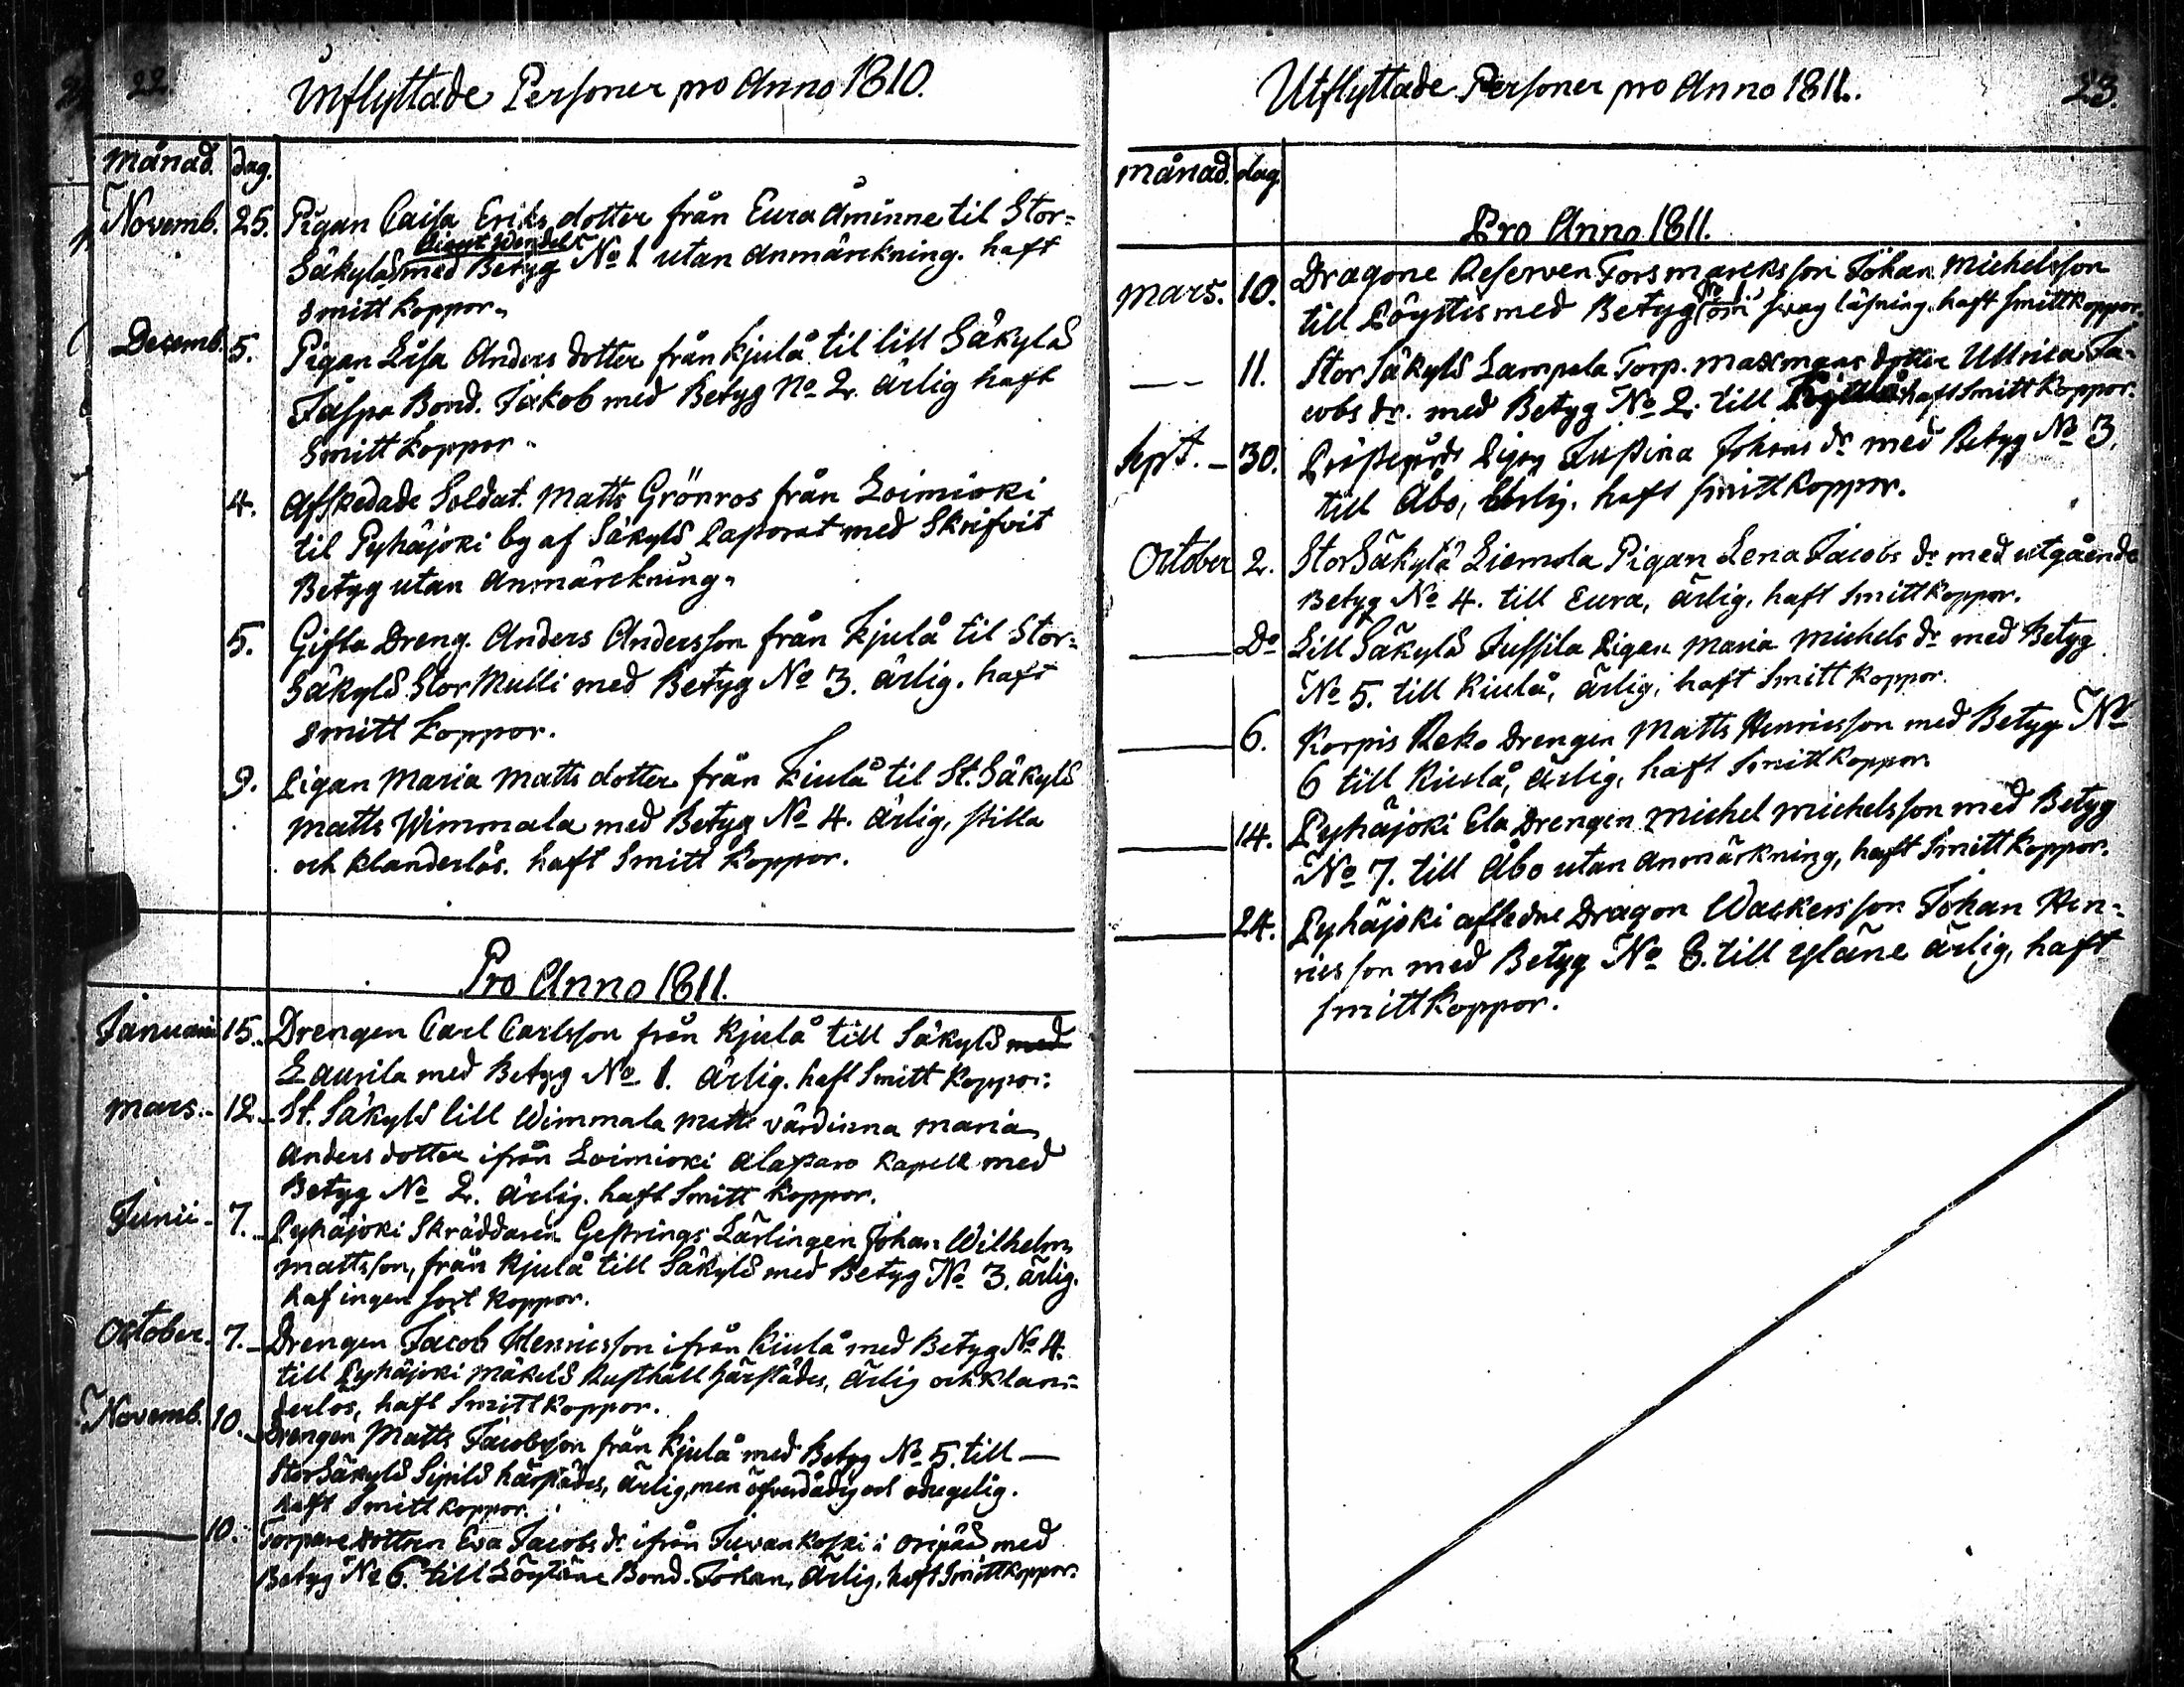 22.
Inflyttade Personer pro Anno 1810.
Månad. dag.
Novemb. 25. Pigan Caisa Eriks dotter från Eura Åminne til Stor=
Säkylä med Betyg No 1 utan Anmärckning. haft
Smitt koppor.
Decemb. 5. Pigan Lisa Anders dotter från Kjulå til lill Säkylä
Jaspo Bond. Jakob med Betyg No 2. ärlig haft
Smitt koppor.
4. Afskedade Soldat. Matts Grönros från Loimioki
til Pyhäjoki by af Säkylä Pastorat med Skrifvit
Betyg utan Anmärckning.
5. Gifta Dreng. Anders Andersson från Kjulå til Stor=
Säkylä Stor Mulli med Betyg No 3. ärlig. haft
Smitt koppor.
9. Pigan Maria Matts dotter från Kiulå til St. Säkylä
Matts Wimmala med Betyg No 4. ärlig, stilla
och klanderlös. haft Smitt koppor.
Pro Anno 1811.
Januarii 15. Drengen Carl Carlsson från Kjulå till Säkylä med
Laurila med Betyg No 1. ärlig. haft Smitt koppor.
Mars. 12. St. Säkylä lill Wimmala Matts värdinna Maria
Anders dotter ifrån Loimioki Alastaro Kapell med
Betyg No 2. ärlig. haft Smitt koppor.
Junii 7. Pyhäjoki Skräddaren Gestrings Lärlingen Johan Wilhelm
Mattsson, från Kjulå till Säkylä med Betyg No 3. ärlig.
haf ingen sort koppor.
October. 7. Drengen Jacob Henricsson ifrån Kiulå med Betyg No 4.
till Pyhäjoki Mäkelä Rusthåll härstädes, ärlig och klan=
derlös, haft Smittkoppor.
Novemb. 10. Drengen Matts Jacobsson från Kjulå med Betyg No 5. till
Stor Säkylä Sipilä härstädes, ärlig, men öfverdådig och
haft Smittkoppor.
10. Torpare dottren Eva Jacobs dr ifrån Juvankoski i Oripää med
Betyg No 6. till Löytäne Bond. Johan, ärlig, haft Smittkoppor.
23.
Utflyttade Personer pro Anno 1811.
Månad. dag.
Pro Anno 1811.
Mars. 10. Dragone Reserven Forsmarcksson Johan Michelsson
till Pöyttis med Betyg No 1 om svag läsning. haft smittkoppor.
11. Stor Säkylä Lampola Torp. Maxmans dotter Ullrica Ja=
cobs dr. med Betyg No 2. till haft Smittkoppor.
Sept. 30. Pigan Justina Johans dr med Betyg No 3.
till Åbo, Ehrlig. haft smittkoppor.
October 2. Stor Säkylä Liemola Pigan Lena Jacobs dr med utgående
Betyg No 4. till Eura, ärlig, haft Smittkoppor.
Do Lill Säkylä Jussila Pigan Maria Michels dr med Betyg
No 5. till Kiulå, ärlig, haft Smittkoppor.
6. Korpis Reko Drengen Matts Henricsson med Betyg No
6 till Kiulå, ärlig, haft Smittkoppor.
14. Pyhäjoki Ela Drengen Michel Michelsson med Betyg
No 7. till Åbo utan anmärkning, haft Smittkoppor.
24. Pyhäjoki afledne Dragon Wackersson Johan Hen=
ricsson med Betyg No 8. till Yläne ärlig, haft
smittkoppor.